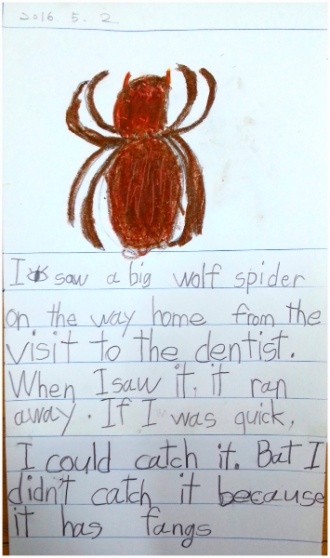 2016. 5. 2
I saw a big wolf spider
on the way home from the
visit to the dentist.
When I saw it, it ran
away. If I was quick,
I could catch it. But I
didn't catch it because
it has fangs